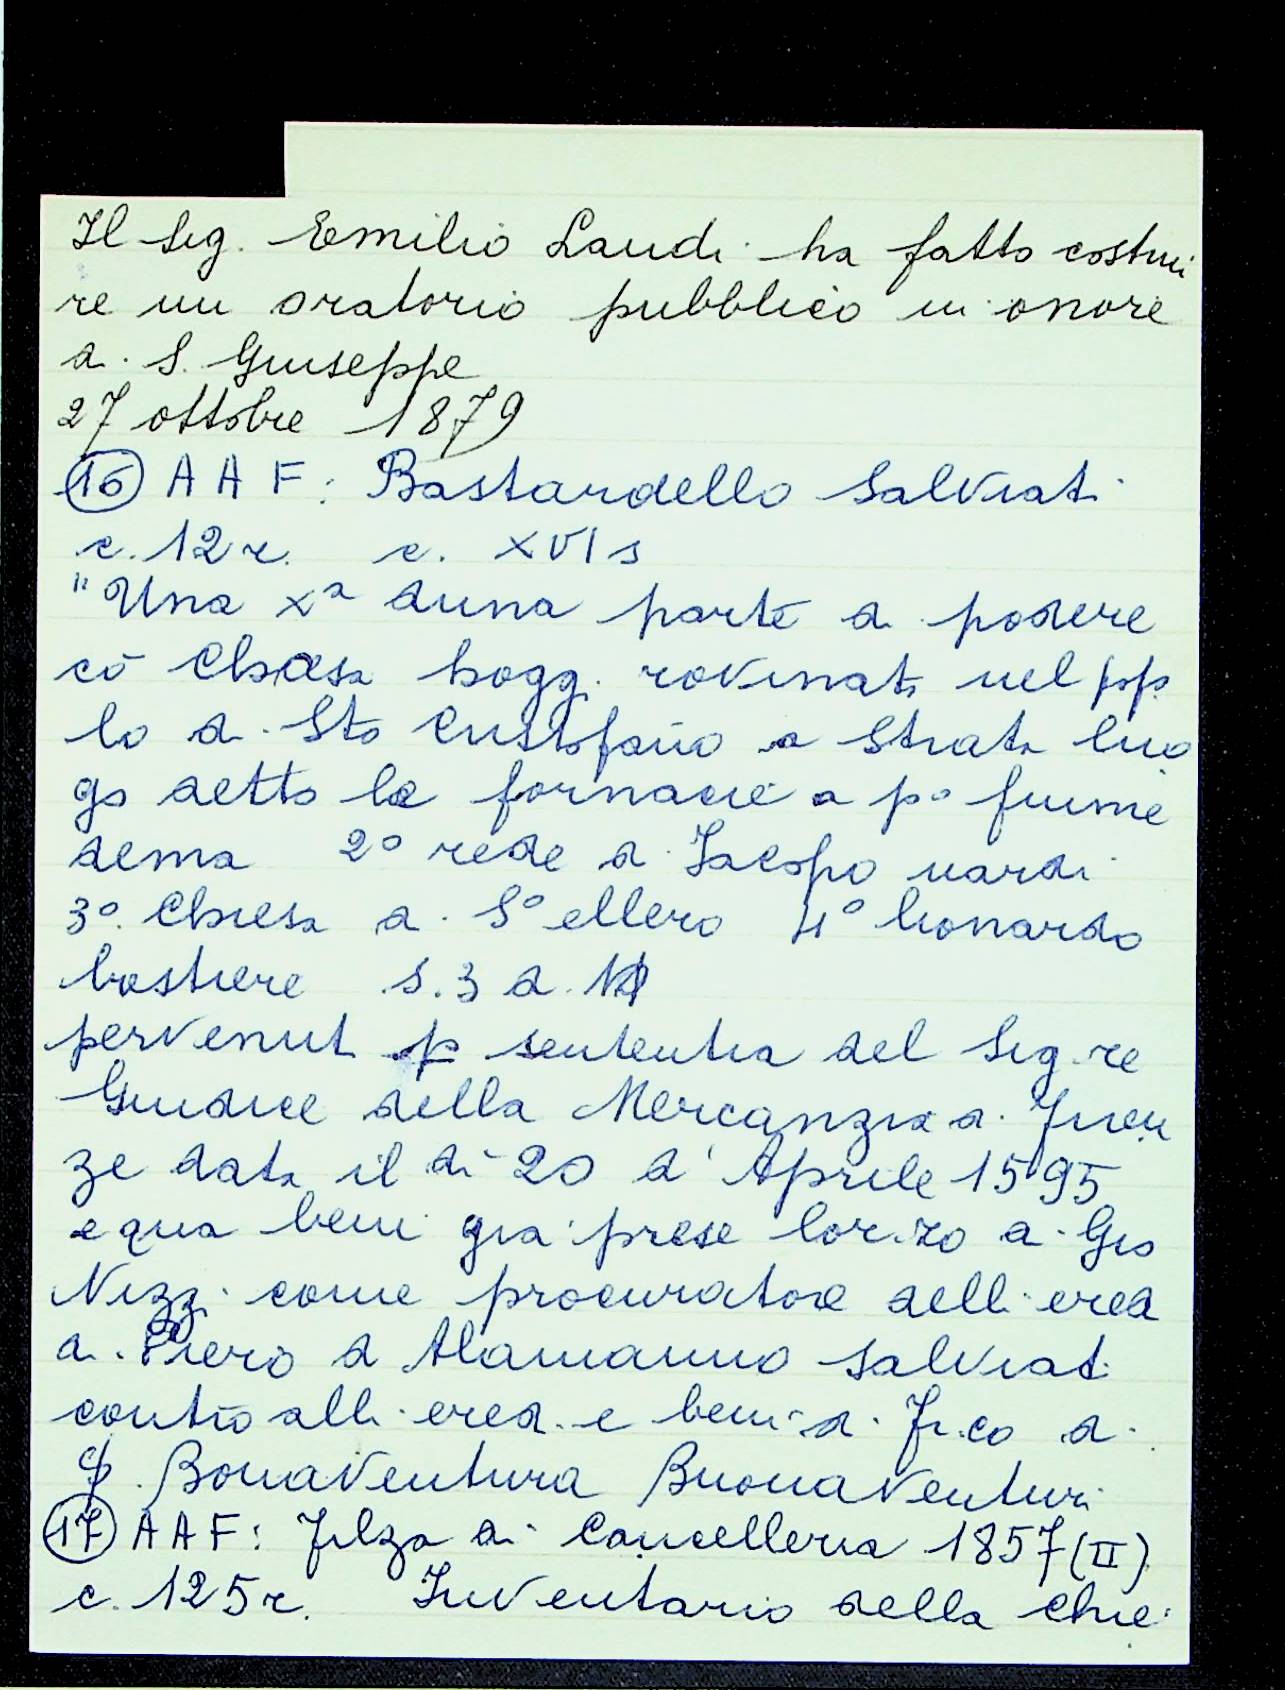 Il Sig. Emilio Landi ha fatto costrui
re un oratorio pubblico in onore
a S. Giuseppe
27 ottobre 1879
16 A A F: Bastardello Salviati
c. 12 r. c. XVI s
"Una xª duna parte di podere
cō Chasa hoggi rovinata nel popo
lo di Sto Cristofano a Strada luo
go detto le fornacie a pº fiume
dema 2º rede di Jacopo nardi
3º. Chiesa di Sº ellero 4º lionardo
bastiere s. 3 d.
pervenuti p sententia del Sig.re
Giudice della Mercanzia di Firen
ze data il di 20 d'Aprile 1595
e qua beni gia prese lor.zo di Gio
Nizzi come procuratore delli eredi
di Piero d Alamanno Salviati
contro alli eredi e beni di Fr.co di
Bonaventura Buonaventuri
17 A A F: Filza di Cancelleria 1857 (II)
c. 125 r. Inventario della Chie